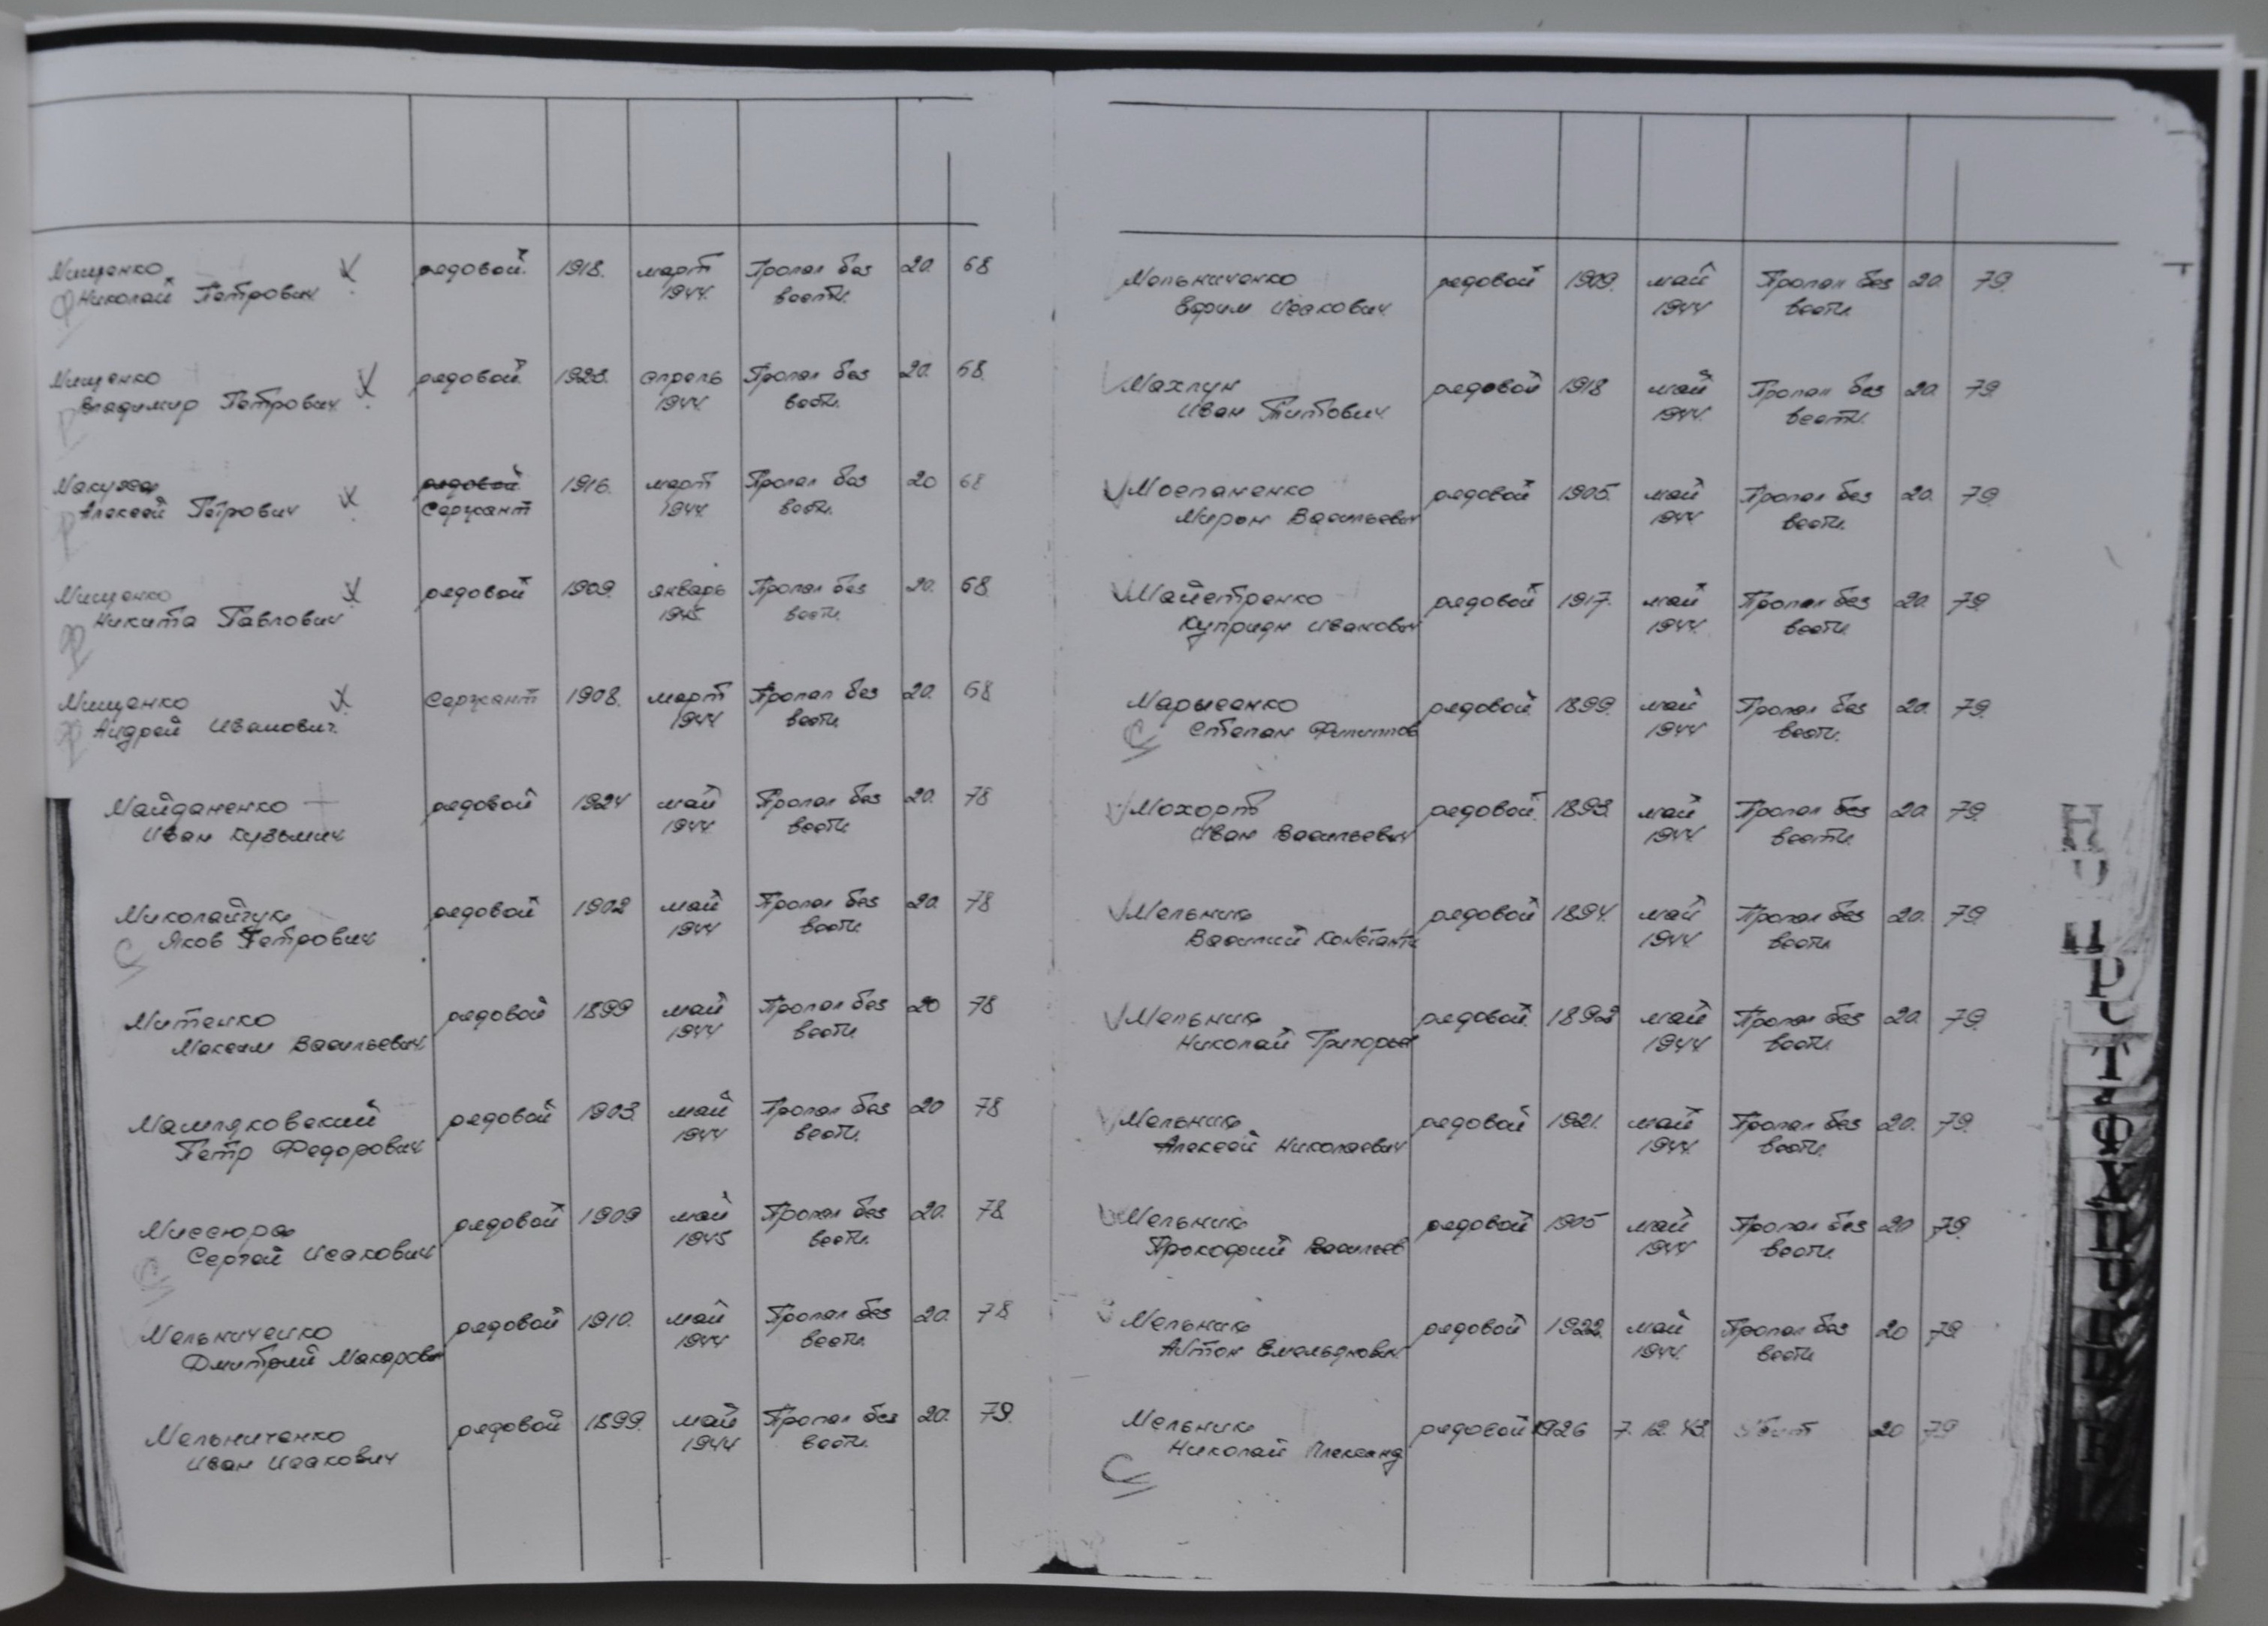 Мищенко рядовой. 1918. март Пропал без 20. 68
Николай Петрович 1944. вести.
Мищенко рядовой. 1923. апрель Пропал без 20. 68.
Владимир Петрович 1944. вести.
рядовой 1916. март Пропал без 20 68
Алексей Петрович Сержант 1944. вести.
Мищенко рядовой 1909. январь Пропал без 20. 68.
Никита Павлович 1945. вести.
Мищенко Сержант 1908. март Пропал без 20. 68
Андрей Иванович. 1944 вести.
Майданенко рядовой 1924 май Пропал без 20. 78
Иван Кузьмич 1944. вести
Миколайчук рядовой 1902 май Пропал без 20. 78
С Яков Петрович 1944 вести.
Митенко рядовой 1899 май Пропал без 20 78
Максим Васильевич 1944 вести.
Мамляковский рядовой 1903. май Пропал без 20 78
Петр Федорович 1944 вести.
Миссюра рядовой 1909 май Пропал без 20. 78
С Сергей Исакович 1945 вести.
Мельниченко рядовой 1910. май Пропал без 20. 78
Дмитрий Макаров 1944 вести.
Мельниченко рядовой 1899. май Пропал без 20. 79.
Иван Исакович 1944 вести.
Мельниченко рядовой 1909. май Пропал без 20. 79.
Ефим Исакович 1944 вести.
Махлун рядовой 1918 май Пропал без 20. 79.
Иван Титович 1944. вести.
Моспаненко рядовой 1905. май Пропал без 20. 79.
Мирон Васильевич 1944 вести.
Майстренко рядовой 1917. май Пропал без 20. 79.
Куприян Иванович 1944. вести.
Марысенко рядовой. 1899. май Пропал без 20. 79.
С Степан Филиппов 1944 вести.
Мохорт рядовой. 1893. май Пропал без 20. 79.
Иван Васильевич 1944. вести.
Мельник рядовой 1894. май Пропал без 20. 79.
Василий Константи 1944 вести
Мельник рядовой. 1892 май Пропал без 20. 79.
Николай Григорье 1944 вести.
Мельник рядовой 1921. май Пропал без 20. 79.
Алексей Николаевич 1944. вести.
Мельник рядовой 1905 май Пропал без 20 79.
Прокофий Васильев 1944 вести.
Мельник рядовой 1922. май Пропал без 20 79.
Антон Емельянович. 1944. вести
Мельник рядовой 1926 7. 12. 43. Убит 20 79
С Николай Александ
Н
О
П
Р
С
Т
У
Ф